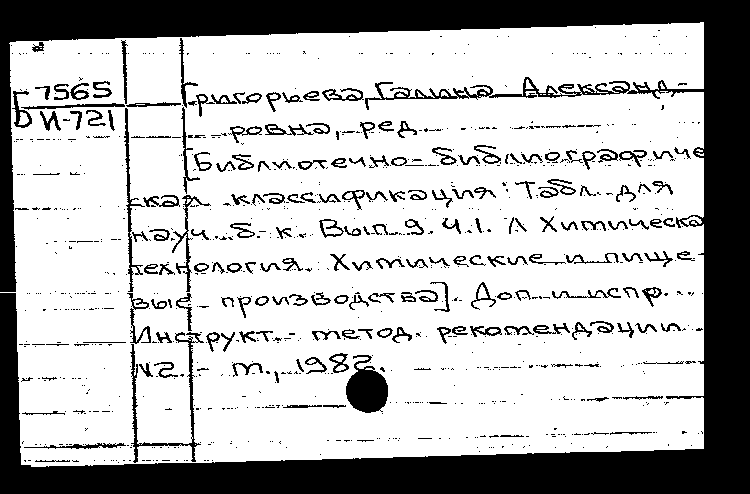 Б 7565
И-721
Григорьева, Галина Александ-
ровна, ред.
[Библиотечно-библиографиче
ская классификация: Табл. для
науч. б-к. Вып. 9. Ч.1. Л Химическа
технология. Химические и пище-
вые производства]. Доп. и испр...
Инструкт.-метод. рекомендации.
М., 1982.